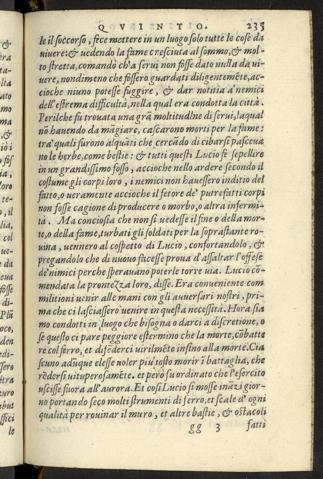 QVINTO. 235
le il soccorso, fece mettere in un luogo solo tutte le cose da
viuere: & uedendo la fame cresciuta al sommo, & mol-
to stretta, comando ch'a serui non fosse dato nulla da ui-
uere, nondimeno che fossero guardati diligentemēte, ac-
cioche niuno potesse fuggire, & dar notitia a' nemici
dell'estrema difficultà, nella qual era condotta la città.
Perilche fu trouata una grā moltitudine di serui, laqual
nō hauendo da māgiare, cascarono morti per la fame:
tra' quali furono alquāti che cercādo di cibarsi pasceua
no le herbe, come bestie: & tutti questi Lucio fe sepellire
in un grandissimo fosso, accioche nello ardere secondo il
costume gli corpi loro, i nemici non hauessero inditio del
fatto, o ueramente accioche il fetore de' putrefatti corpi
non fosse cagione di producere o morbo, o altra infermi-
tà. Ma conciosia che non si uedesse il fine o della mor-
te, o della fame, turbati gli soldati per la soprastante ro-
uina, uennero al cospetto di Lucio, confortandolo, &
pregandolo che di nuouo facesse proua d'assaltar l'offese
de' nimici perche sperauano poterle torre uia. Lucio cō-
mendata la prontezza loro, disse. Era conueniente com
militioni uenir alle mani con gli auuersari nostri, pri-
ma che ci lasciassero uenire in questa necessità. Hora sia
mo condotti in luogo che bisogna o darci a discretione, o
se questo ci pare peggiore estermino che la morte, cōbatte
re col ferro, et difēderci uirilmēte infino alla morte. Cia
scuno adūque elesse uoler piu tosto morir ī battaglia, che
rēdersi uituperosamēte. et però fu ordinato che l'esercito
uscisse fuora all'aurora. Et cosi Lucio si mosse ināzi gior-
no portando seco molti strumenti di ferro, et scale d'ogni
qualità per rouinar il muro, et altre bastie, & ostacoli
gg 3 fatti